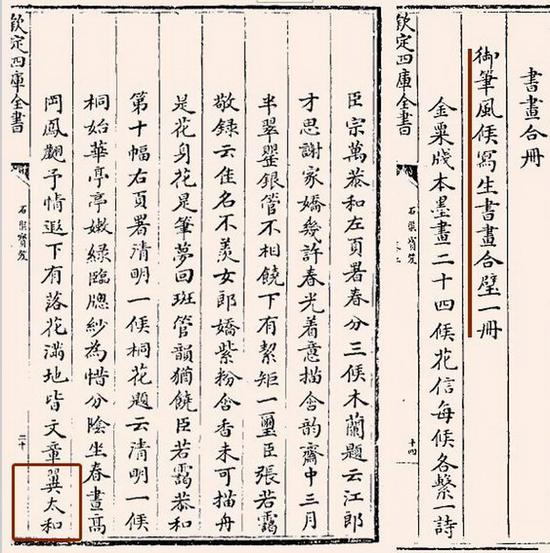 書畫合冊
御筆風候寫生書畫合璧一冊
金粟牋本墨畫二十四候花信每候各繫一詩
欽定四庫全書
石渠寶笈
十四
臣宗萬恭和左頁署春分三候木蘭題云江郎
才思謝家嬌幾許春光着意描含韵齋中三月
半翠罌銀管不相饒下有絜矩一璽臣張若靄
敬錄云佳名不羨女郎嬌紫粉含香未可描舟
是花身花是筆夢回班管韻猶饒臣若靄恭和
第十幅右頁署清明一候桐花題云清明一候
桐始華亭亭嫩綠臨牕紗為惜分陰坐春晝高
岡鳳翽予情遐下有落花滿地皆文章翼太和
欽定四庫全書
石渠寶笈
二十